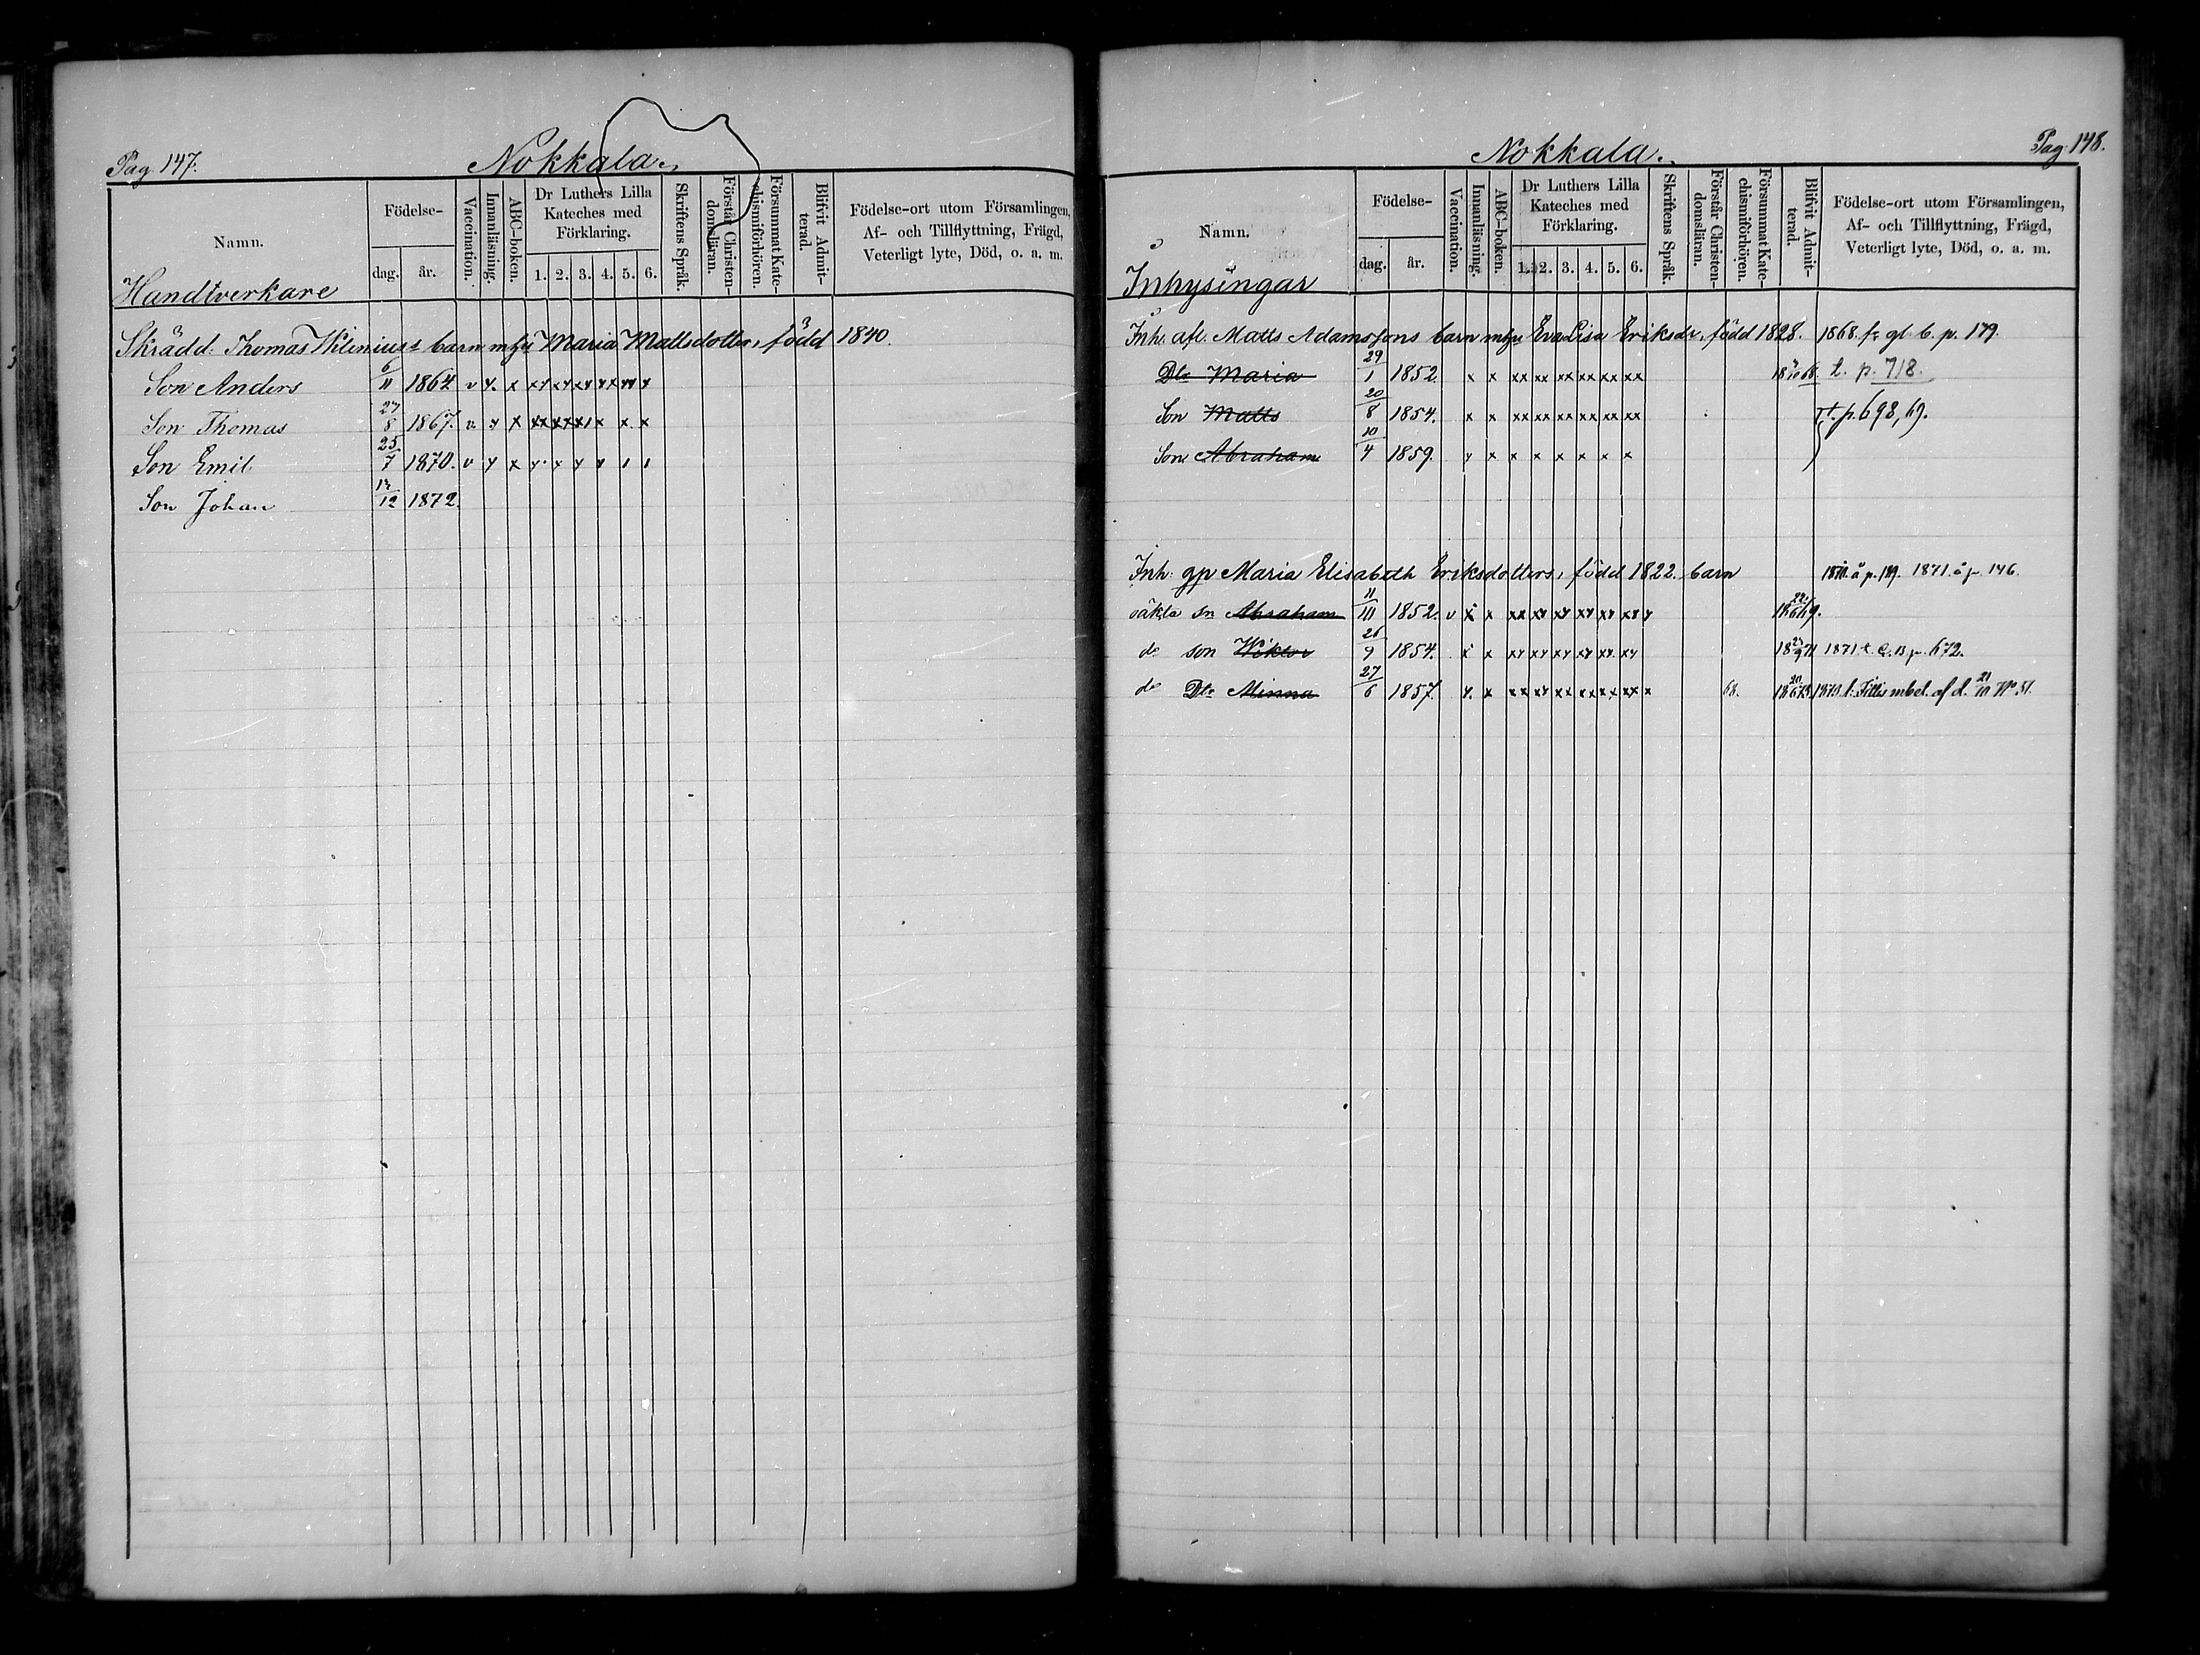 Pag 147.
Nokkala.
Namn.
Födelse-
dag.
år.
Vaccination.
Innanläsning.
ABC-boken.
Dr Luthers Lilla
Kateches med
Förklaring.
1. 2. 3. 4. 5. 6.
Skriftens Språk.
Förstår Christen-
domsläran.
Försummat Kate-
chismiförhören.
Blifvit Admit-
terad.
Födelse-ort utom Församlingen,
Af- och Tillflyttning, Frägd,
Veterligt lyte, Död, o. a. m.
Handtverkare
Skrädd. Thomas barn mhu Maria Mattsdotter, född 1840.
Son Anders 6/11 1864 v y. x
Son Thomas 27/8 1867. v. y x
Son Emil 25/7 1870. v y x
Son Johan 12 1872.
Nokkala.
Pag 148.
Namn.
Födelse-
dag.
år.
Vaccination.
Innanläsning.
ABC-boken.
Dr Luthers Lilla
Kateches med
Förklaring.
1. 2. 3. 4. 5. 6.
Skriftens Språk.
Förstår Christen-
domsläran.
Försummat Kate-
chismiförhören.
Blifvit Admit-
terad.
Födelse-ort utom Församlingen,
Af- och Tillflyttning, Frägd,
Veterligt lyte, Död, o. a. m.
Inhysingar
Inh. afl. Matts Adamssons barn mhu Eva Lisa Eriksdr, född 1828. 1868. fr. gl. b. p. 179.
Dtr Maria 29/1 1852. x x xx xx xx xx xx xx t. p. 718.
Son Matts 20/8 1854. x x xx xx xx xx xx xx t. p. 698, 69.
Son Abraham 10/4 1859. y x x x x x x x
Inh. gp Maria Elisabeth Eriksdotters, född 1822. barn 1871. å p. 146.
oäkta sn Abraham 11/10 1852. v x x
do son Wiktor 26/9 1854. x x 1871 t. p. 672.
do Dtr Minna 27/6 1857. y. x 68.